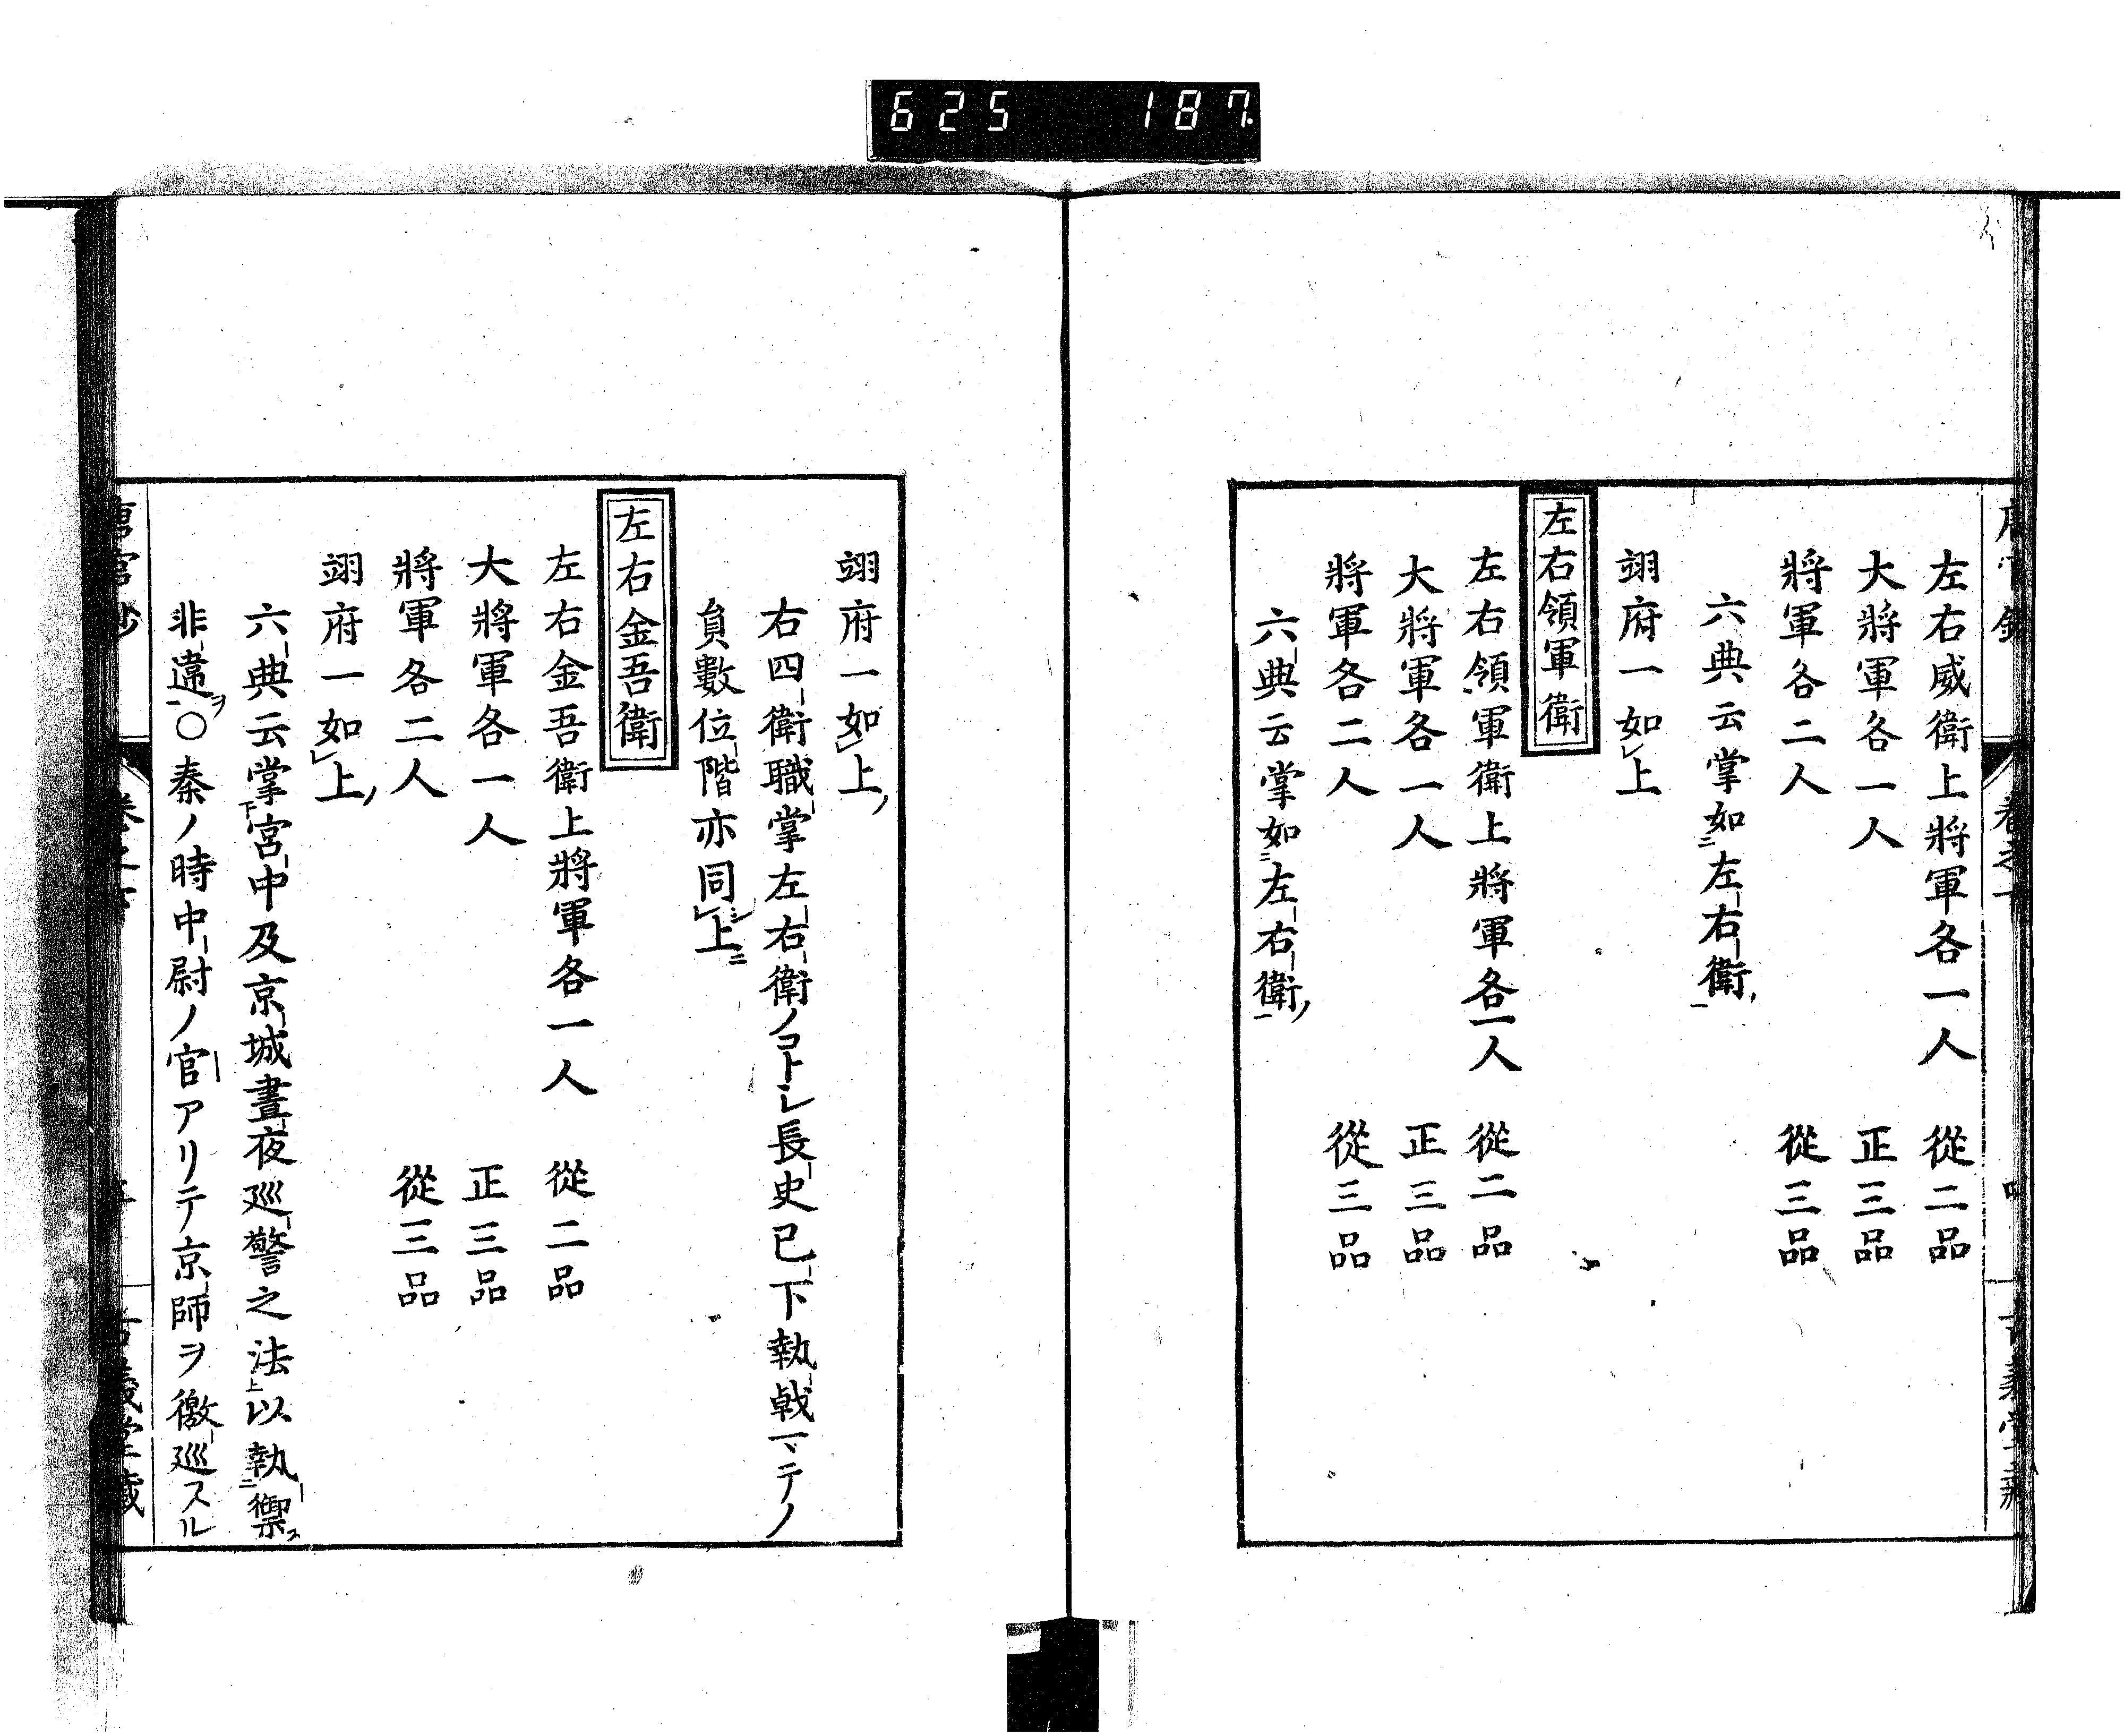 625 187
左右威衛上將軍各一人 從二品
大將軍各一人 正三品
將軍各二人 從三品
六典云掌如二左右衛一
翊府一如レ上
左右領軍衛
左右領軍衛上將軍各一人 從二品
大將軍各一人 正三品
將軍各二人 從三品
六典云掌如二左右衛一
翊府一如レ上
右四衛職掌左右衛ノコトシ長史已下執戟マテノ
員數位階亦同シレ上ニ
左右金吾衛
左右金吾衛上將軍各一人 從二品
大將軍各一人 正三品
將軍各二人 從三品
翊府一如レ上
六典云掌下宮中及京城晝夜巡警之法上以執二禦ス
非違一ヲ〇秦ノ時中尉ノ官アリテ京師ヲ徼巡スル